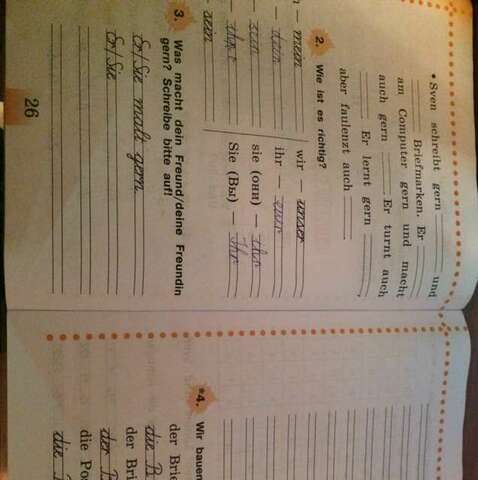 • Sven schreibt gern ______ und
______ Briefmarken. Er ______
am Computer gern und macht
auch gern ______. Er turnt auch
______. Er lernt gern ______,
aber faulenzt auch ______.
2. Wie ist es richtig?
– mein
– dein
– sein
– sein
wir – unser
ihr – euer
sie (они) – ihr
Sie (Вы) – Ihr
3. Was macht dein Freund/deine Freundin
gern? Schreibe bitte auf!
Er/Sie malt gern
Er/Sie
26
*4. Wir bauen
der Brie
die B
der Bri
der B
die Pos
die